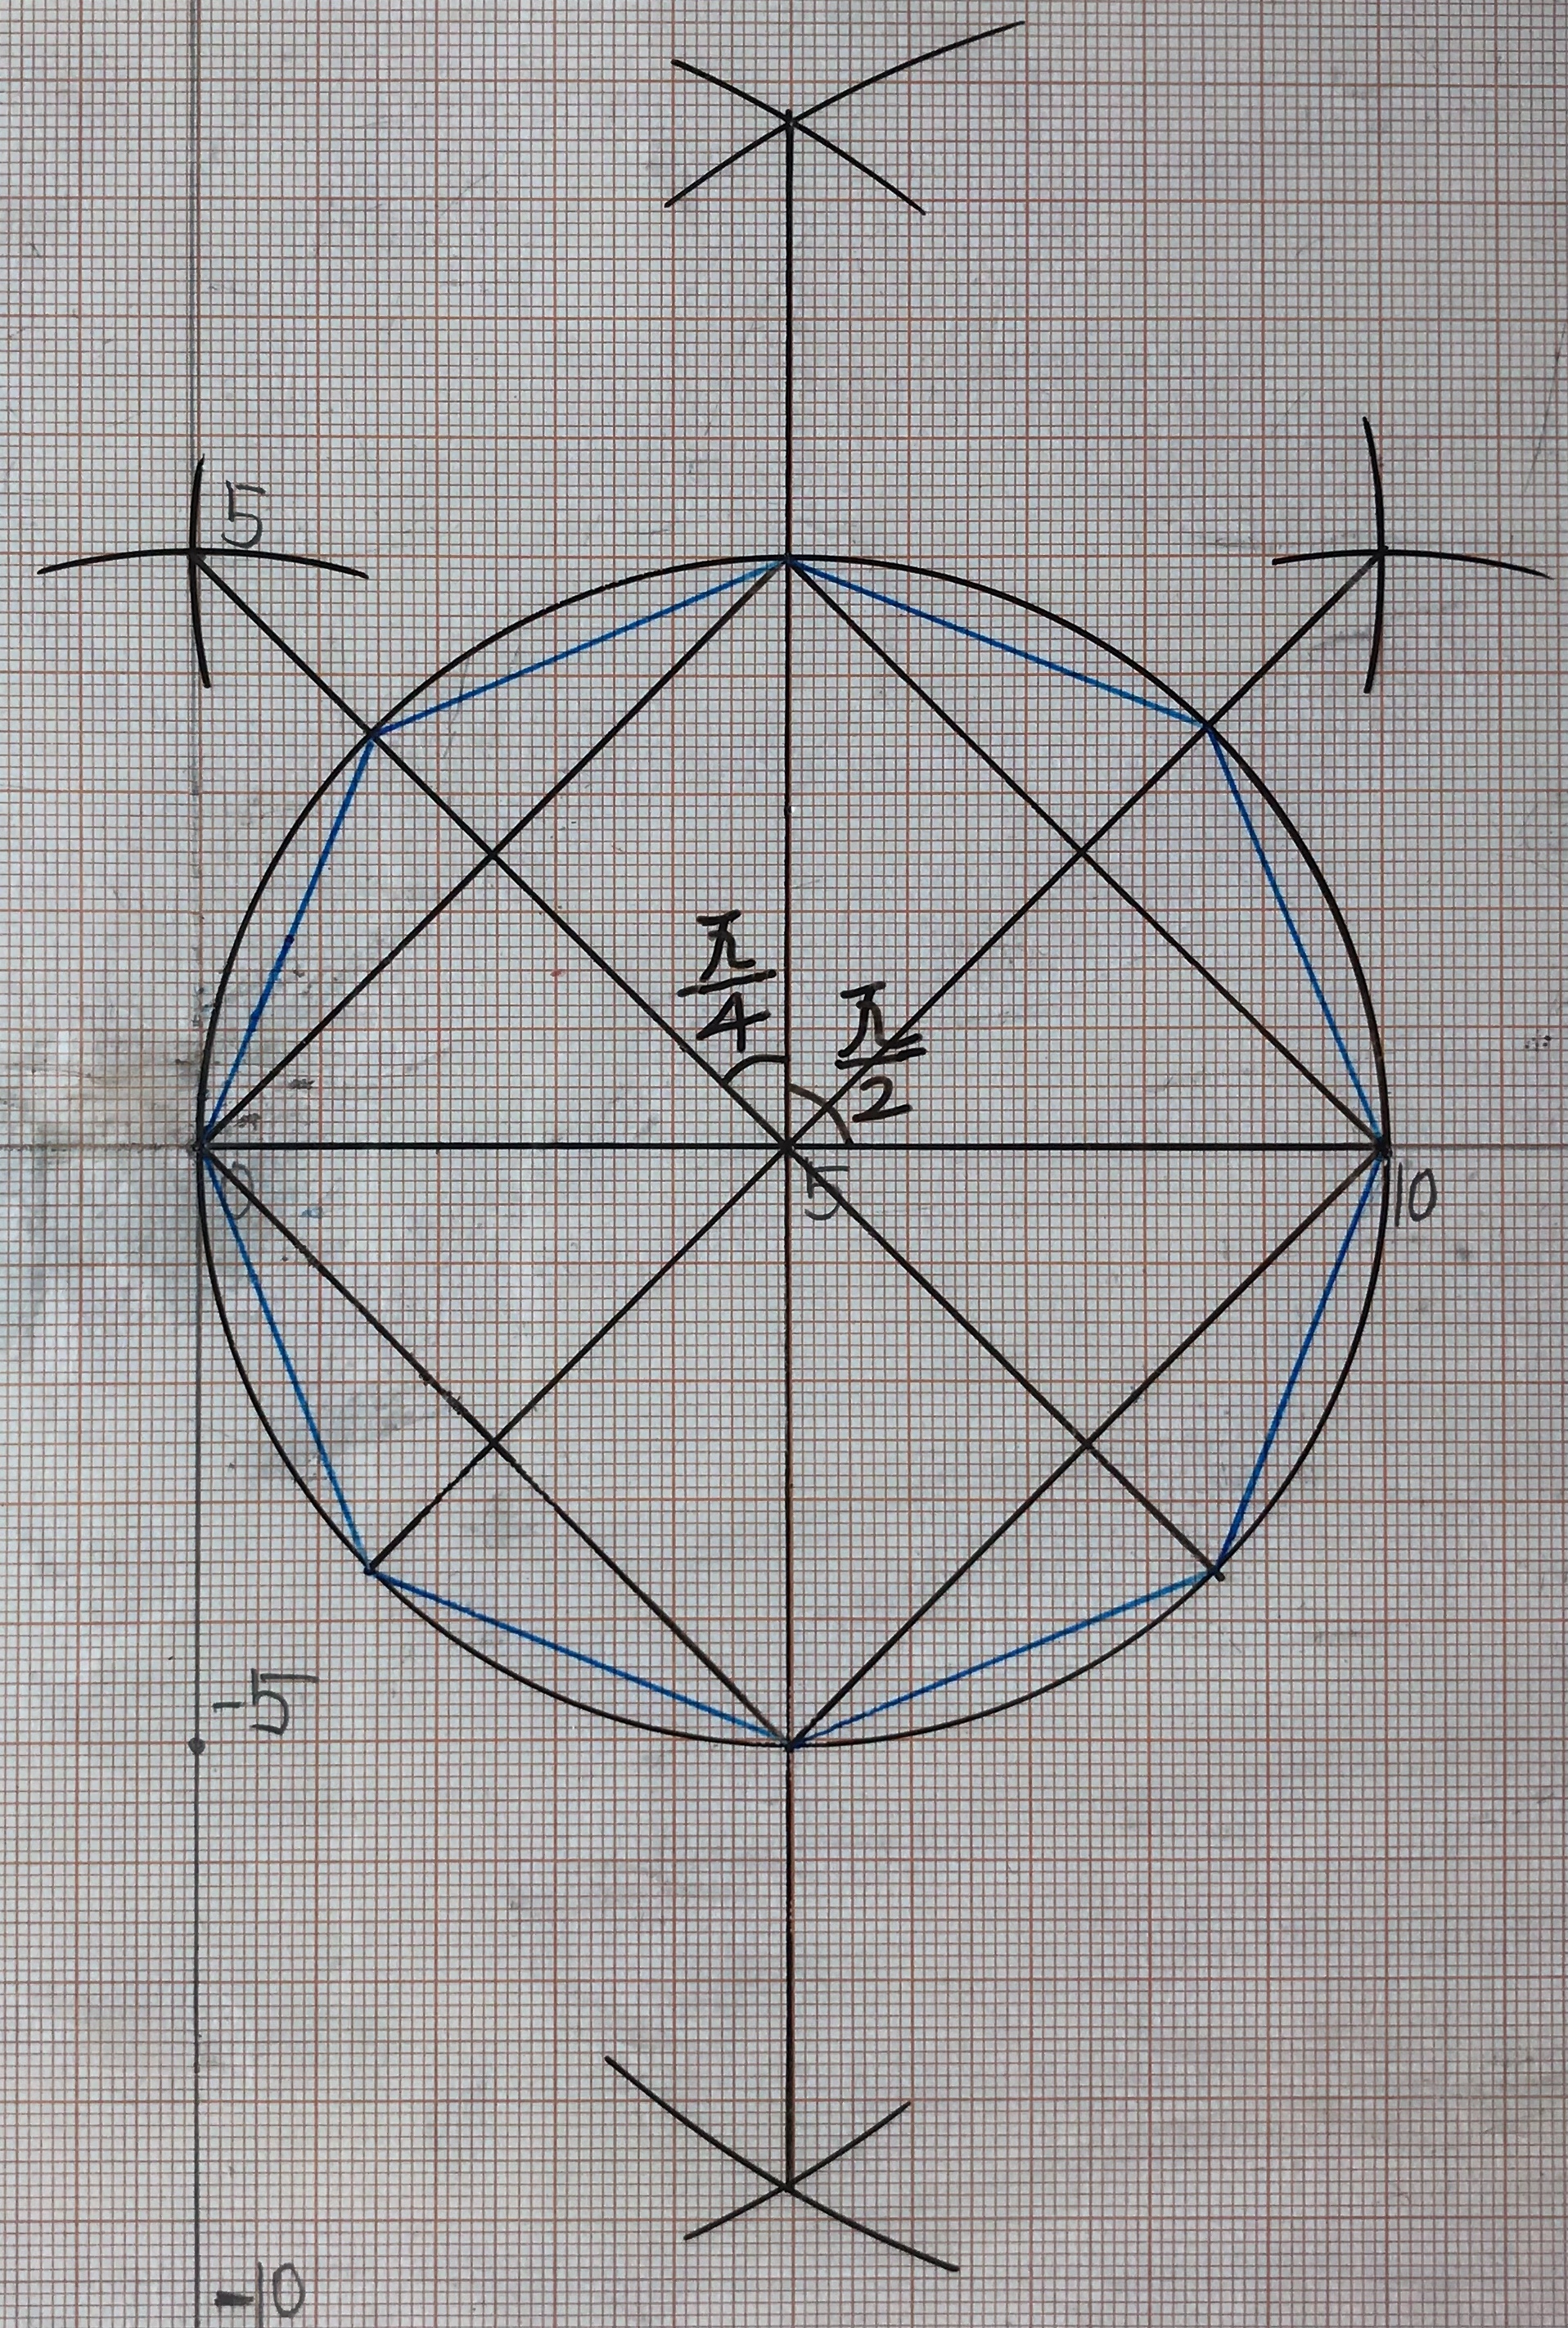 5
π/4
π/2
0
5
10
-5
-10